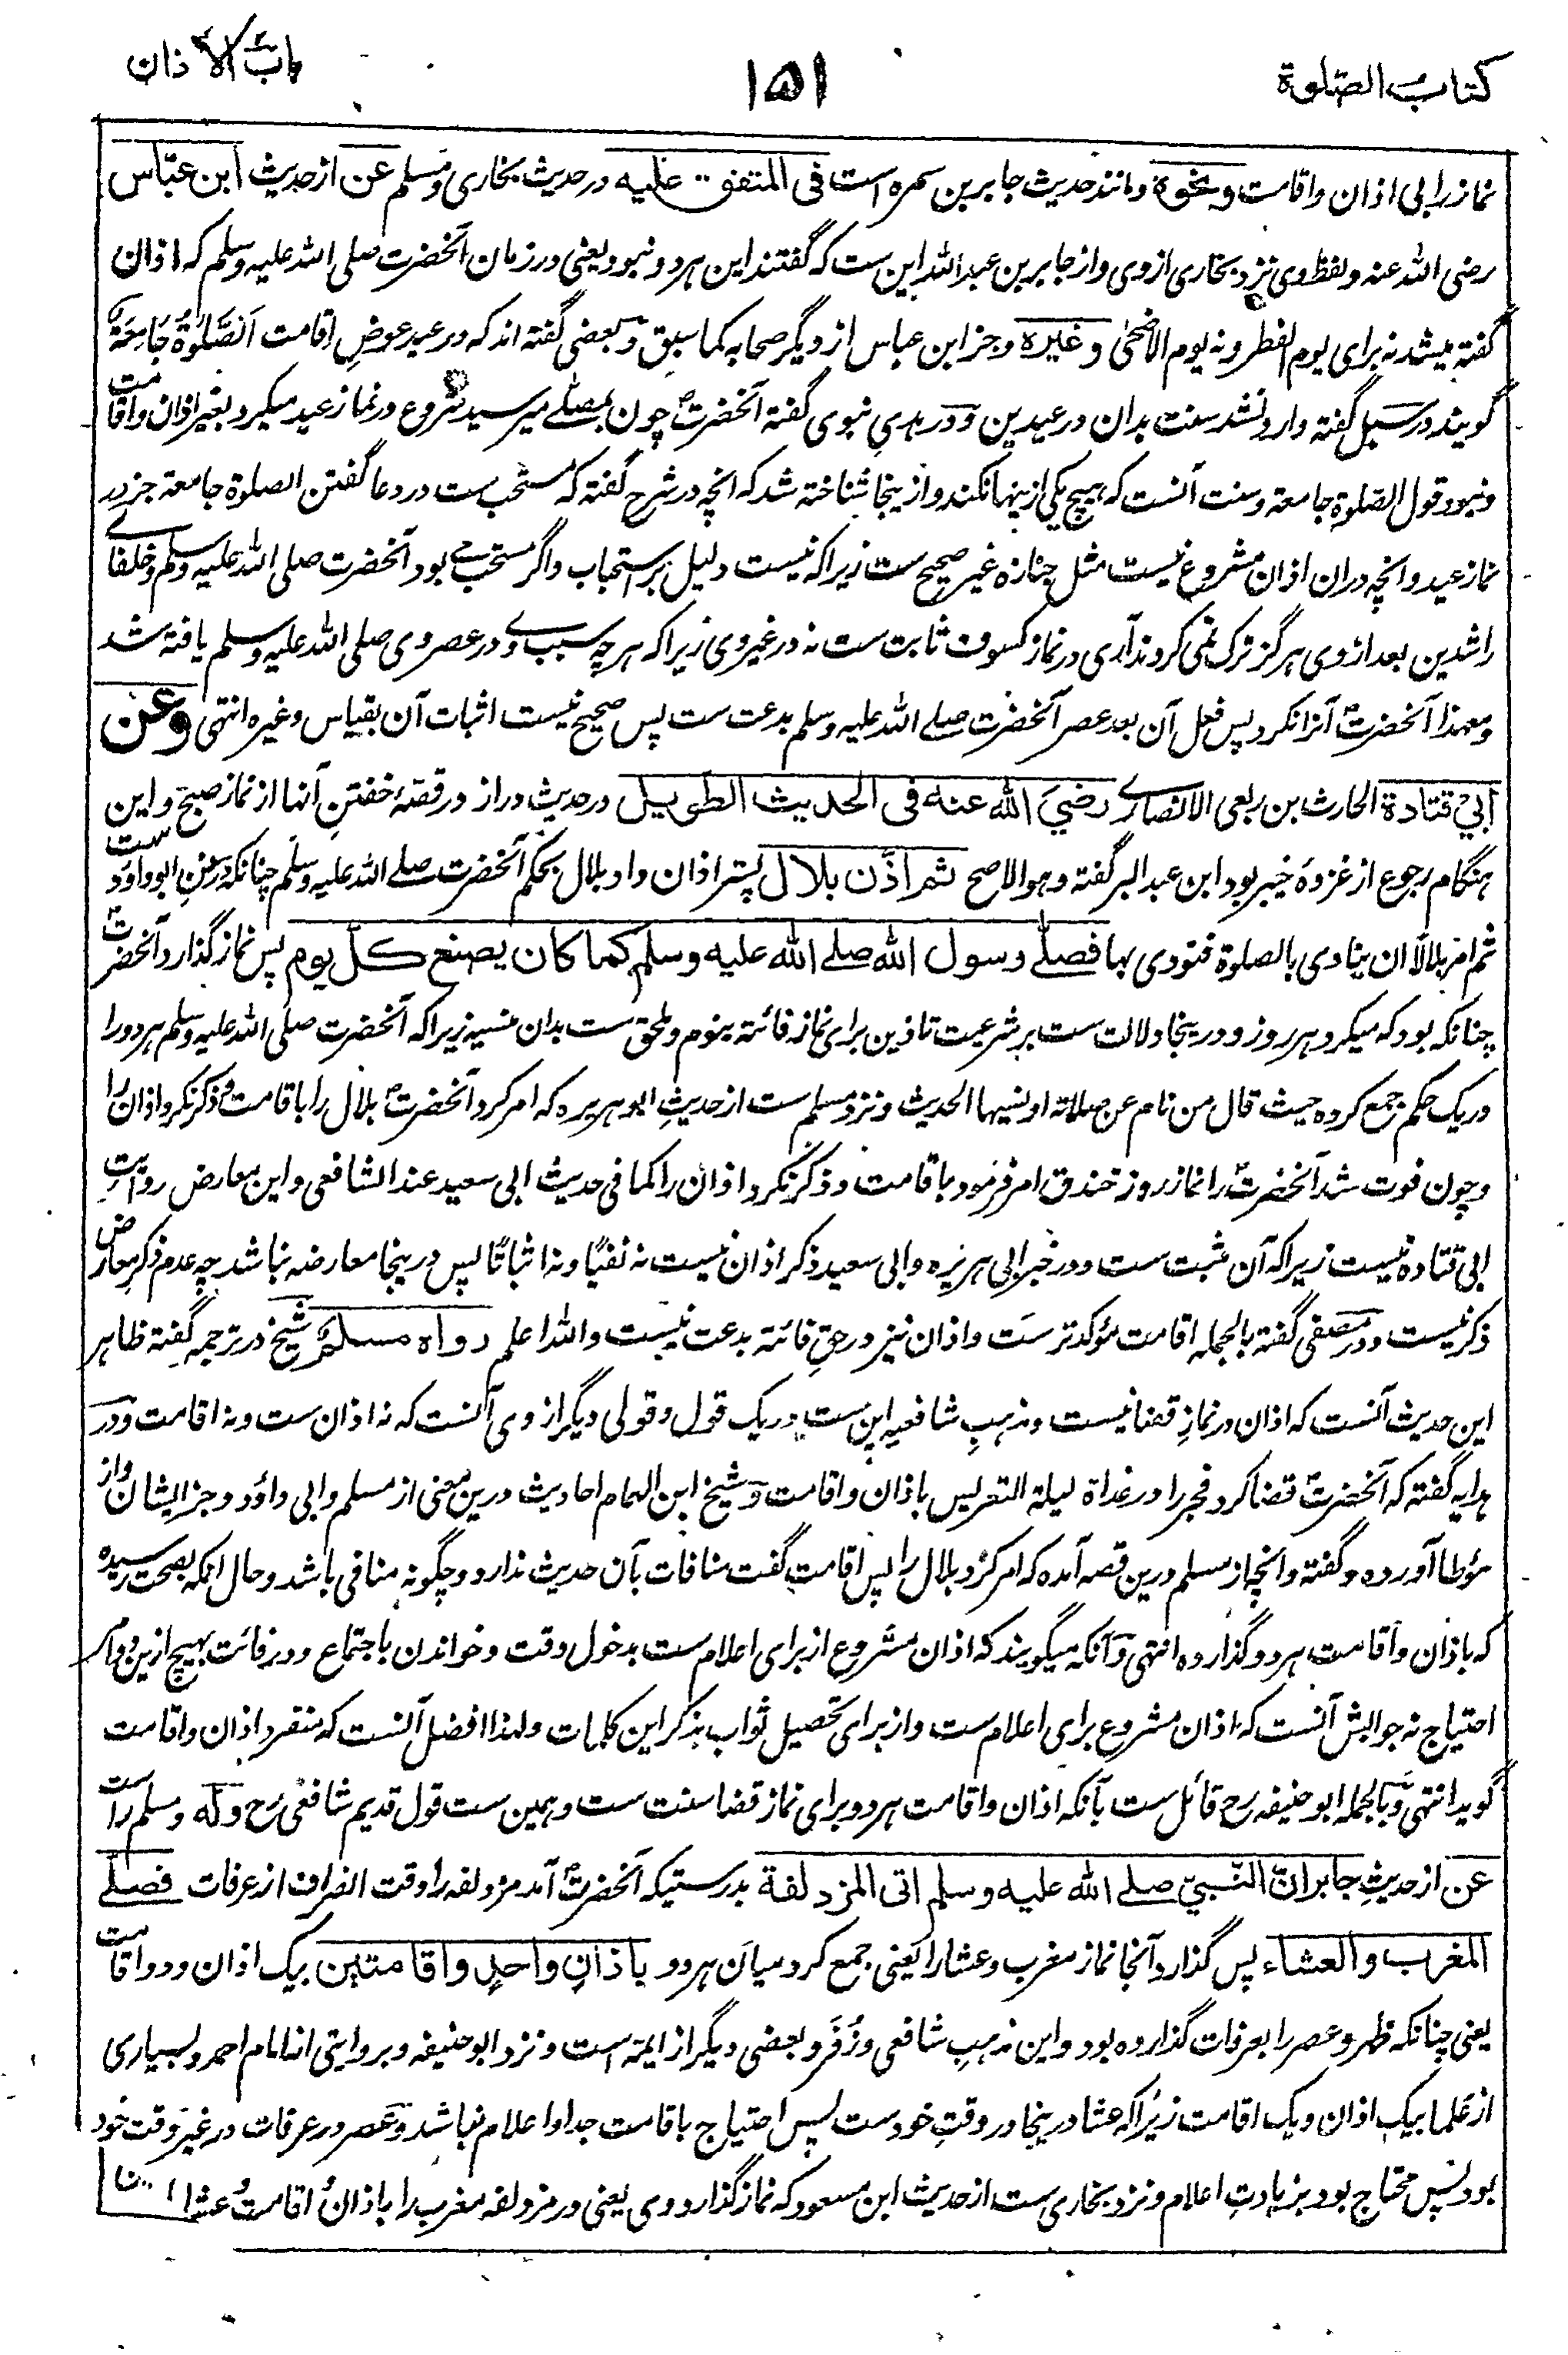 کتاب الصلوة
۱۵۱
باب الاذان
نماز را بی اذان واقامت ونحوه ومانند حدیث جابر بن سمره است فی المتفق علیه در حدیث بخاری ومسلم عن از حدیث ابن عباس
رضی الله عنه ولفظ وی نزد بخاری از وی واز جابر بن عبدالله این ست که گفتند این هر دو نبود یعنی در زمان آنحضرت صلی الله علیه وسلم که اذان
گفته میشد نه برای یوم الفطر ونه یوم الاضحی وغیره وجز ابن عباس از دیگر صحابه کما سبق وبعضی گفته اند که در عید عوضِ اقامت اَلصَّلٰوةُ جَامِعَةٌ
گویند ودر سبل گفته وارد نشد سنت بدان در عیدین ودر هدیِ نبوی گفته آنحضرتؐ چون بمصلے میرسید شروع در نماز عید میکرد بغیر اذان واقامت
ونبود قول الصّلوة جامعة وسنت آنست که هیچ یکی ازینها نکند وازینجا شناخته شد که انچه در شرح گفته که مستحب ست در دعا گفتن الصلوة جامعة جز در
نماز عید وانچه دران اذان مشروع نیست مثل جنازه غیر صحیح ست زیرا که نیست دلیل بر استحباب واگر مستحب می بود آنحضرت صلی الله علیه وسلم وخلفاے
راشدین بعد از وی هرگز ترک نمی کردند آری در نماز کسوف ثابت ست نه در غیر وی زیرا که هر چه سببے در عصر وی صلی الله علیه وسلم یافته شد
ومعهذا آنحضرتؐ آنرا نکرد پس فعل آن بعد عصر آنحضرت صلے الله علیه وسلم بدعت ست پس صحیح نیست اثبات آن بقیاس وغیره انتهی وعن
ابی قتادة الحارث بن ربعی الانصاری رضی الله عنه فی الحدیث الطویل در حدیث دراز در قصهٔ خفتنِ آنها از نماز صبح واین
هنگام رجوع از غزوهٔ خیبر بود ابن عبدالبر گفته وهو الاصح ثم اذّن بلال پستر اذان داد بلال بحکم آنحضرت صلے الله علیه وسلم چنانکه در سننِ ابوداود ست
ثم امر بلالًا ان ینادی بالصلوة فنودی بها فصلّے رسول الله صلے الله علیه وسلم کما کان یصنع کلّ یوم پس نماز گذارد آنحضرتؐ
چنانکه بود که میکرد هر روز ودرینجا دلالت ست بر شرعیت تاذین برای نماز فائته بنوم وملحق ست بدان منسیه زیرا که آنحضرت صلی الله علیه وسلم هر دو را
در یک حکم جمع کرده حیث قال من نام عن صلاته او نسیها الحدیث ونزد مسلم ست از حدیثِ ابوهریره که امر کرد آنحضرتؐ بلال را باقامت وذکر نکرد اذان را
وچون فوت شد آنحضرتؐ را نماز روز خندق امر فرمود باقامت وذکر نکرد اذان را کما فی حدیث ابی سعید عند الشافعی واین معارض روایتِ
ابی قتاده نیست زیرا که آن مثبت ست ودر خبر ابی هریره وابی سعید ذکر اذان نیست نه نفیًا ونه اثباتًا پس درینجا معارضه نباشد چه عدم ذکر معارض
ذکر نیست ودر مصفی گفته بالجمله اقامت مؤکدتر ست واذان نیز در حقِ فائتة بدعت نیست والله اعلم رواه مسلم شیخ در ترجمه گفته ظاهر
این حدیث آنست که اذان در نمازِ قضا نیست ومذهبِ شافعیه این ست در یک قول وقولی دیگر از وی آنست که نه اذان ست ونه اقامت ودر
هدایه گفته که آنحضرتؐ قضا کرد فجر را در غداة لیلة التعریس باذان واقامت وشیخ ابن الهمام احادیث درین معنی از مسلم وابی داؤد وجز ایشان واز
مؤطا آورده وگفته وانچه از مسلم درین قصه آمده که امر کرد بلال را پس اقامت گفت منافات بآن حدیث ندارد وچگونه منافی باشد وحال انکه بصحت رسیده
که باذان واقامت هر دو گذارده انتهی وآنکه میگویند که اذان مشروع از برای اعلام ست بدخول وقت وخواندن باجتماع ودر فائت بهیچ ازین دو امر
احتیاج نه جوابش آنست که اذان مشروع برای اعلام ست واز برای تحصیل ثواب بذکر این کلمات ولهذا افضل آنست که منفرد اذان واقامت
گوید انتهی وبالجمله ابوحنیفه رح قائل ست بآنکه اذان واقامت هر دو برای نماز قضا سنت ست وهمین ست قول قدیم شافعی رح وله ومسلم را ست
عن از حدیثِ جابر انّ النّبیّ صلے الله علیه وسلم اتی المزدلفة بدرستیکه آنحضرتؐ آمد مزدلفه را وقت انصراف از عرفات فصلّے
المغرب والعشاء پس گذارد آنجا نماز مغرب وعشا را یعنی جمع کرد میان هر دو باذانٍ واحدٍ واقامتین بیک اذان ودو اقامت
یعنی چنانکه ظهر وعصر را بعرفات گذارده بود واین مذهبِ شافعی وزُفَر وبعضی دیگر از ایمه است ونزد ابوحنیفه وبروایتی از امام احمد وبسیاری
از علما بیک اذان ویک اقامت زیرا که عشا درینجا در وقتِ خود ست پس احتیاج باقامت جدا واعلام نباشد وعصر در عرفات در غیر وقت خود
بود پس محتاج بود بزیادتِ اعلام ونزد بخاری ست از حدیث ابن مسعود که نماز گذارد وی یعنی در مزدلفه مغرب را باذان واقامت وعشا